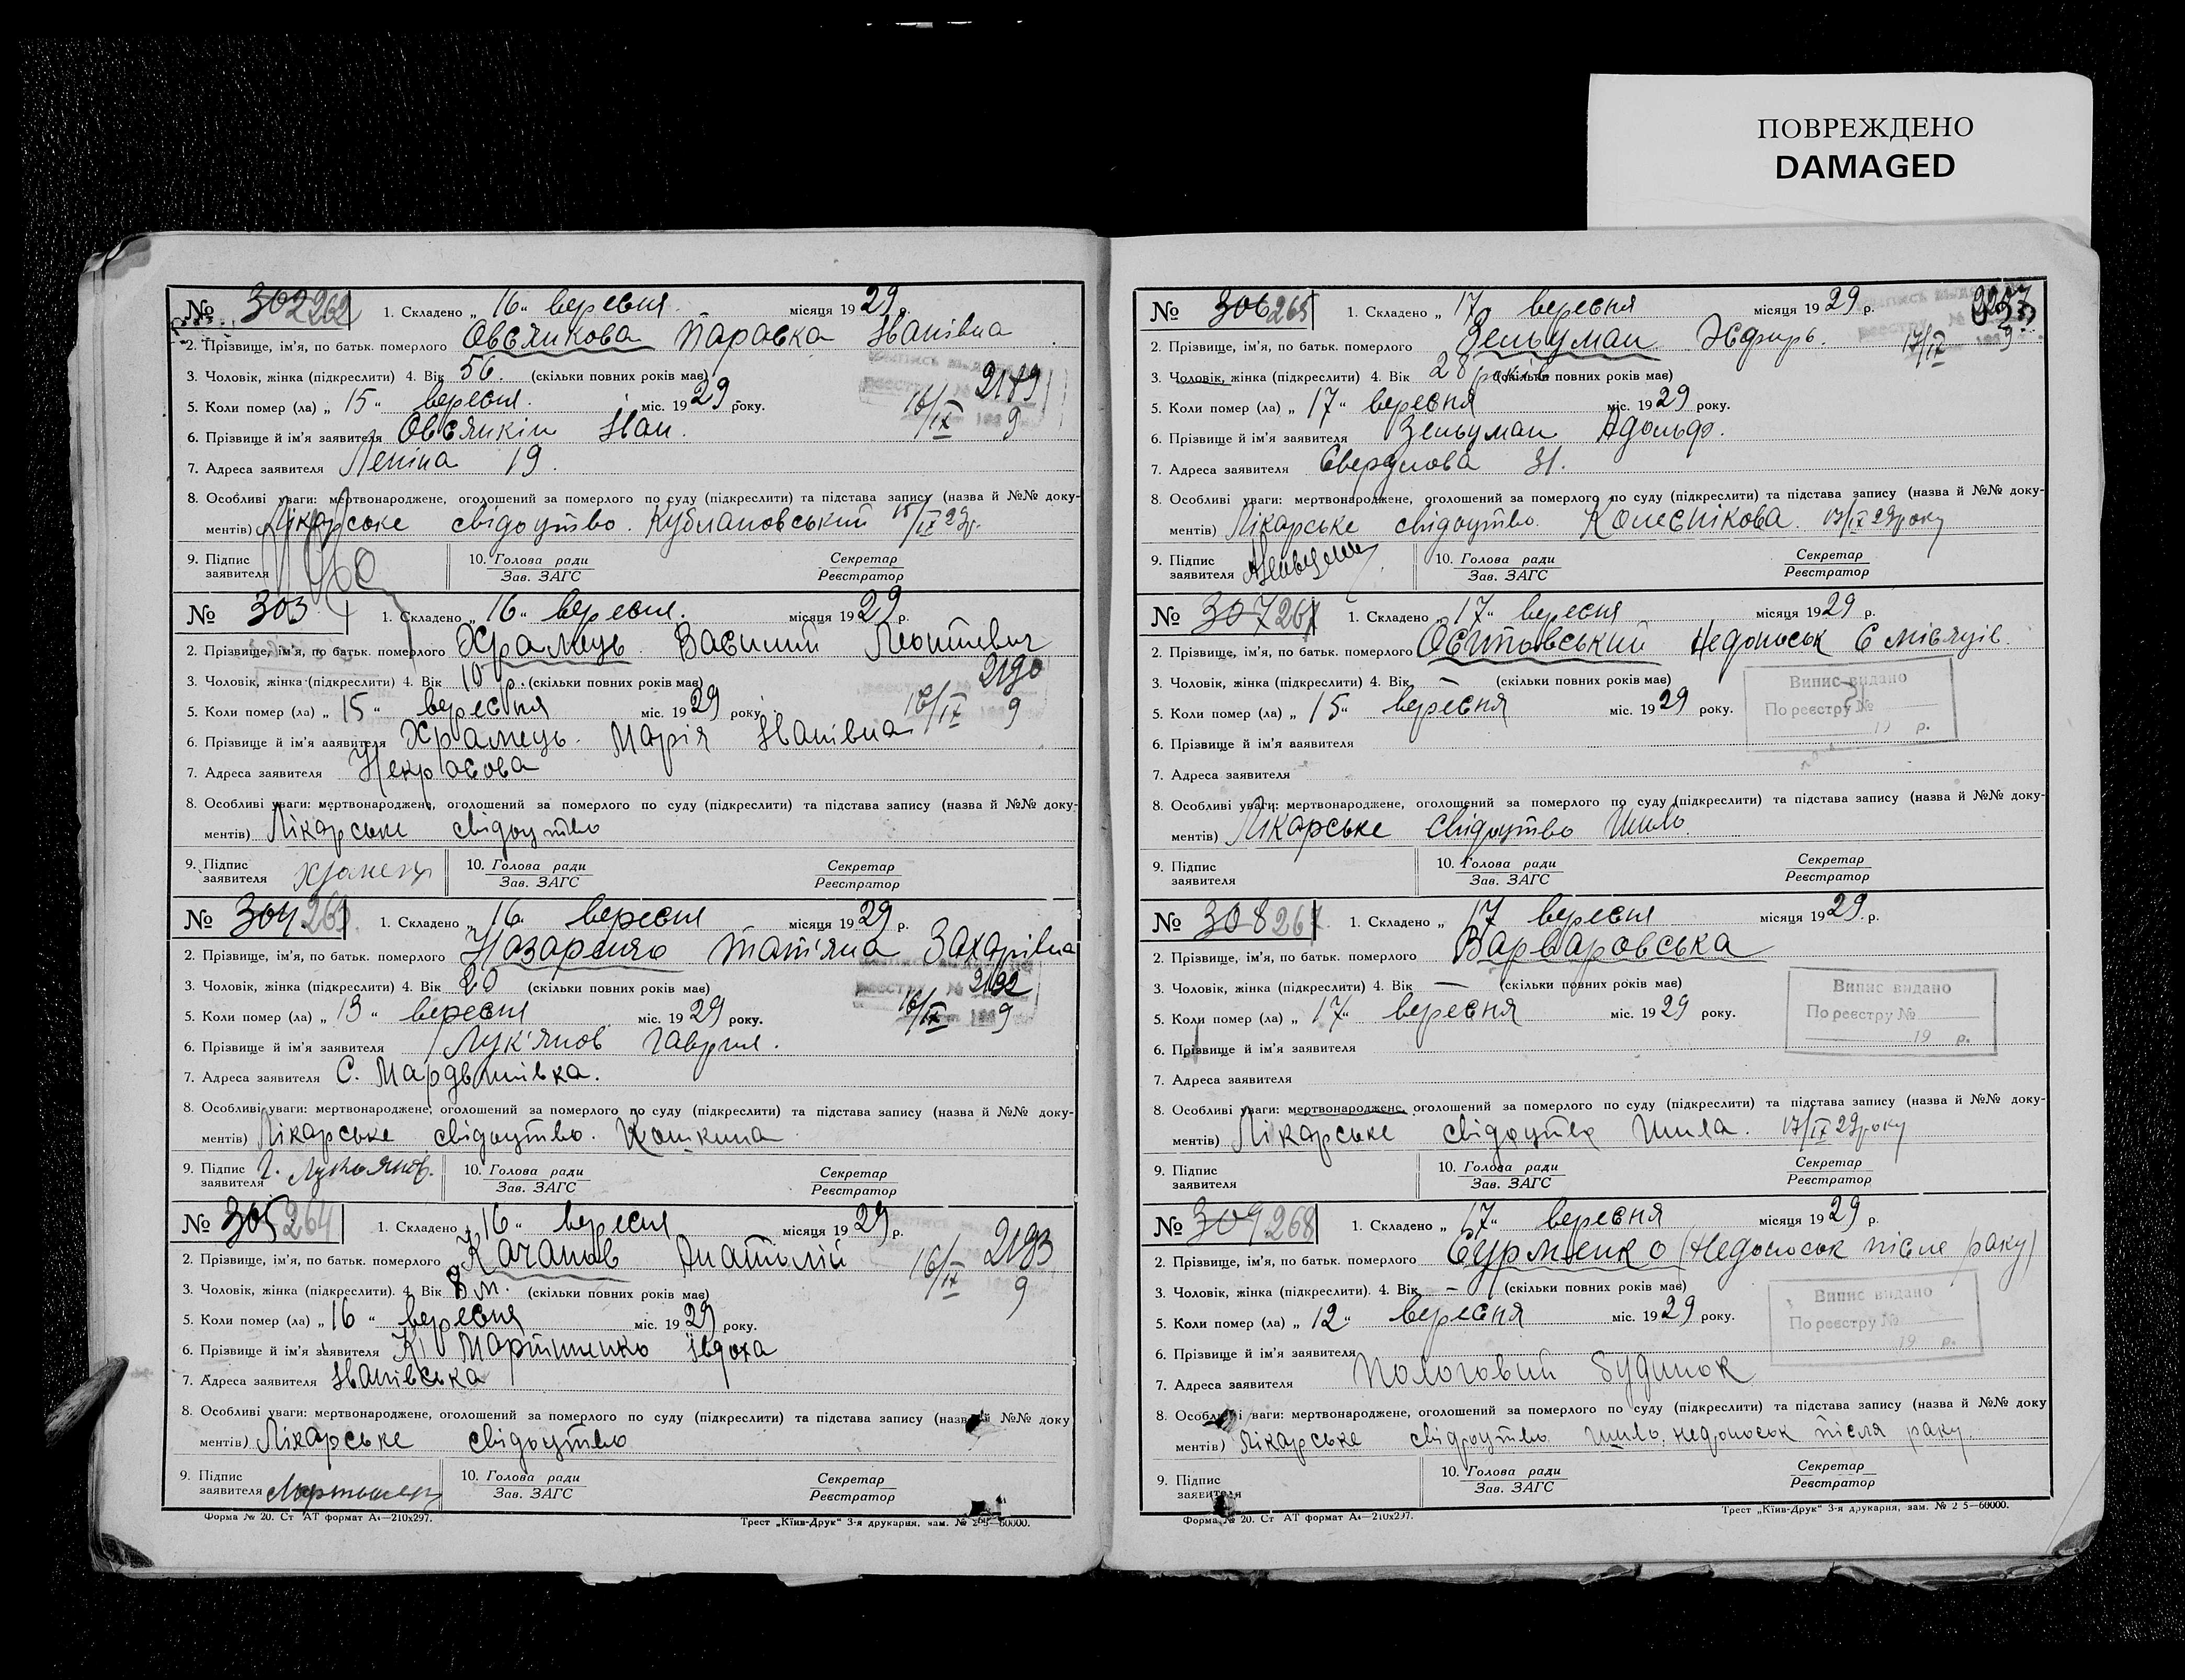 ПОВРЕЖДЕНО
DAMAGED
№ 302 262 1. Складено „ 16 “ вересня місяця 19 29 р.
2. Прізвище, ім'я, по батьк. померлого Овсяникова Параска Іванівна
3. Чоловік, жінка (підкреслити) 4. Вік 56. (скільки повних років має) 2189
5. Коли помер (ла) „ 15 “ вересня. міс. 19 29 року. 16/IX 9
6. Прізвище й ім'я заявителя Овсянкін Іван.
7. Адреса заявителя Леніна 19.
8. Особливі уваги: мертвонароджене, оголошений за померлого по суду (підкреслити) та підстава запису (назва й №№ доку-
ментів) Лікарське свідоцтво. Кублановський 15/IX 29р.
9. Підпис заявителя 10. Голова ради Зав. ЗАГС Секретар Реєстратор
№ 303 1. Складено „ 16 “ вересня. місяця 19 29 р.
2. Прізвище, ім'я, по батьк. померлого Храмець Василий Леонтієвич
3. Чоловік, жінка (підкреслити) 4. Вік 10 р. (скільки повних років має) 2190
5. Коли помер (ла) „ 15 “ вересня міс. 19 29 року 16/IX 9
6. Прізвище й ім'я заявителя Храмець Марія Іванівна
7. Адреса заявителя Некрасова
8. Особливі уваги: мертвонароджене, оголошений за померлого по суду (підкреслити) та підстава запису (назва й №№ доку-
ментів) Лікарське свідоцтво
9. Підпис заявителя Храмець 10. Голова ради Зав. ЗАГС Секретар Реєстратор
№ 304 263 1. Складено „ 16 вересня місяця 19 29 р.
2. Прізвище, ім'я, по батьк. померлого Назаренко Тат'яна Захарівна
3. Чоловік, жінка (підкреслити) 4. Вік 20 (скільки повних років має) 2192
5. Коли помер (ла) „ 13 “ вересня міс. 19 29 року. 16/IX 9
6. Прізвище й ім'я заявителя Лук'янов Гаврил.
7. Адреса заявителя С. Мардвинівка.
8. Особливі уваги: мертвонароджене, оголошений за померлого по суду (підкреслити) та підстава запису (назва й №№ доку-
ментів) Лікарське свідоцтво. Кошкина
9. Підпис заявителя Г. Лукьянов. 10. Голова ради Зав. ЗАГС Секретар Реєстратор
№ 305 264 1. Складено „ 16 “ вересня місяця 19 29 р.
2. Прізвище, ім'я, по батьк. померлого Качанов Анатолій 16/IX 2193
3. Чоловік, жінка (підкреслити). 4. Вік 8 м. (скільки повних років має) 9
5. Коли помер (ла) „ 16 “ вересня міс. 19 29 року.
6. Прізвище й ім'я заявителя Мартиненко Явдоха
7. Адреса заявителя Іванівська
8. Особливі уваги: мертвонароджене, оголошений за померлого по суду (підкреслити) та підстава запису (назва й №№ доку
ментів) Лікарське свідоцтво
9. Підпис заявителя 10. Голова ради Зав. ЗАГС Секретар Реєстратор
Форма № 20. Ст АТ формат А4—210х297. Трест „Київ-Друк“ 3-я друкарня, зам. № 2 5—60000.
№ 306 265 1. Складено „ 17 вересня місяця 19 29 р.
2. Прізвище, ім'я, по батьк. померлого Зельцман 17/IX 9
3. Чоловік, жінка (підкреслити) 4. Вік 28 років (скільки повних років має)
5. Коли помер (ла) „ 17 “ вересня міс. 19 29 року.
6. Прізвище й ім'я заявителя Зельцман Адольф.
7. Адреса заявителя Свердлова 31.
8. Особливі уваги: мертвонароджене, оголошений за померлого по суду (підкреслити) та підстава запису (назва й №№ доку-
ментів) Лікарське свідоцтво. Колеснікова. 17/IX 29року
9. Підпис заявителя 10. Голова ради Зав. ЗАГС Секретар Реєстратор
№ 307 267 1. Складено „ 17 “ вересня місяця 19 29 р.
2. Прізвище, ім'я, по батьк. померлого Осиповський Недоноськ 6 місяців.
3. Чоловік, жінка (підкреслити) 4. Вік — (скільки повних років має)
Випис видано
По реєстру №
19 р.
5. Коли помер (ла) „ 15 “ вересня міс. 19 29 року.
6. Прізвище й ім'я заявителя
7. Адреса заявителя
8. Особливі уваги: мертвонароджене, оголошений за померлого по суду (підкреслити) та підстава запису (назва й №№ доку-
ментів) Лікарське свідоцтво Шило.
9. Підпис заявителя 10. Голова ради Зав. ЗАГС Секретар Реєстратор
№ 308 267 1. Складено „ 17 вересня місяця 19 29 р.
2. Прізвище, ім'я, по батьк. померлого Варваровська
3. Чоловік, жінка (підкреслити) 4. Вік — (скільки повних років має)
Випис видано
По реєстру №
19 р.
5. Коли помер (ла) „ 17 “ вересня міс. 19 29 року.
6. Прізвище й ім'я заявителя
7. Адреса заявителя
8. Особливі уваги: мертвонароджене, оголошений за померлого по суду (підкреслити) та підстава запису (назва й №№ доку-
ментів) Лікарське свідоцтво Шила. 17/IX 29року
9. Підпис заявителя 10. Голова ради Зав. ЗАГС Секретар Реєстратор
№ 309 268 1. Складено „ 17 “ вересня місяця 19 29 р.
2. Прізвище, ім'я, по батьк. померлого Сурменко (Недоносок після раку)
3. Чоловік, жінка (підкреслити). 4. Вік — (скільки повних років має)
Випис видано
По реєстру №
19 р.
5. Коли помер (ла) „ 12 “ вересня міс. 19 29 року.
6. Прізвище й ім'я заявителя
7. Адреса заявителя Пологовий будинок
8. Особливі уваги: мертвонароджене, оголошений за померлого по суду (підкреслити) та підстава запису (назва й №№ доку
ментів) Лікарське свідоцтво Шило, недоносок після раку.
9. Підпис заявителя 10. Голова ради Зав. ЗАГС Секретар Реєстратор
Форма № 20. Ст АТ формат А4—210х297. Трест „Київ-Друк“ 3-я друкарня, зам. № 2 5—60000.